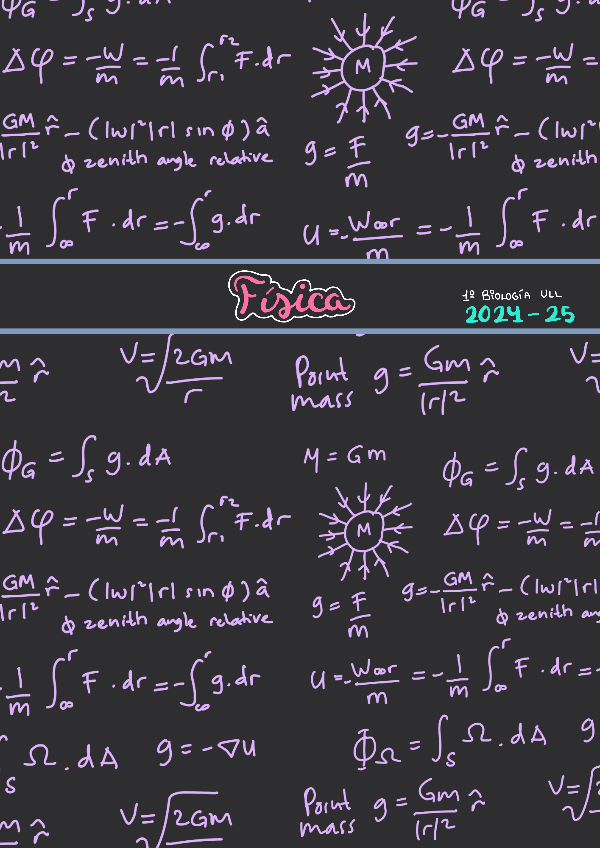 φG = ∫s g. dA
Δφ = -W/m = -1/m ∫r1 r2 F.dr
M
Δφ = -W/m =
GM/|r|² r̂ - (|w|²|r| sin ϕ) â
ϕ zenith angle relative
g = F/m
g=-GM/|r|² r̂ - (|w|²
ϕ zenith
-1/m ∫∞ r F . dr = -∫∞ r g. dr
U = -W∞r/m = -1/m ∫∞ r F . dr
Física
1º BIOLOGÍA ULL
2024-25
m/2 r̂
V = √2GM/r
Point mass g = Gm/|r|² r̂
V=
ϕG = ∫s g. dA
M = Gm
ϕG = ∫s g. dA
Δφ = -W/m = -1/m ∫r1 r2 F.dr
M
Δφ = -W/m = -1/m
GM/|r|² r̂ - (|w|²|r| sin ϕ) â
ϕ zenith angle relative
g = F/m
g=-GM/|r|² r̂ - (|w|²|r|
ϕ zenith ang
-1/m ∫∞ r F . dr = -∫∞ r g. dr
U = -W∞r/m = -1/m ∫∞ r F . dr =-
∫s Ω. dA
g = -∇U
ΦΩ = ∫s Ω. dA
g
m r̂
V = √2GM
Point mass g = Gm/|r|² r̂
V=√2